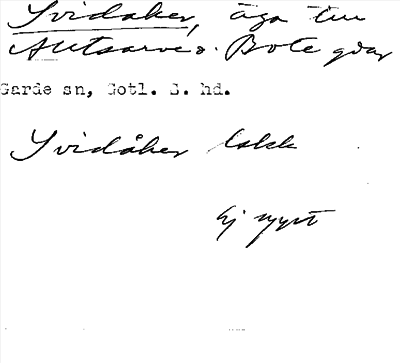 Svidaker, äga till
Alltsarve o. Bote gdar
Garde sn, Gotl. S. hd.
Svidåker
Ej nytt